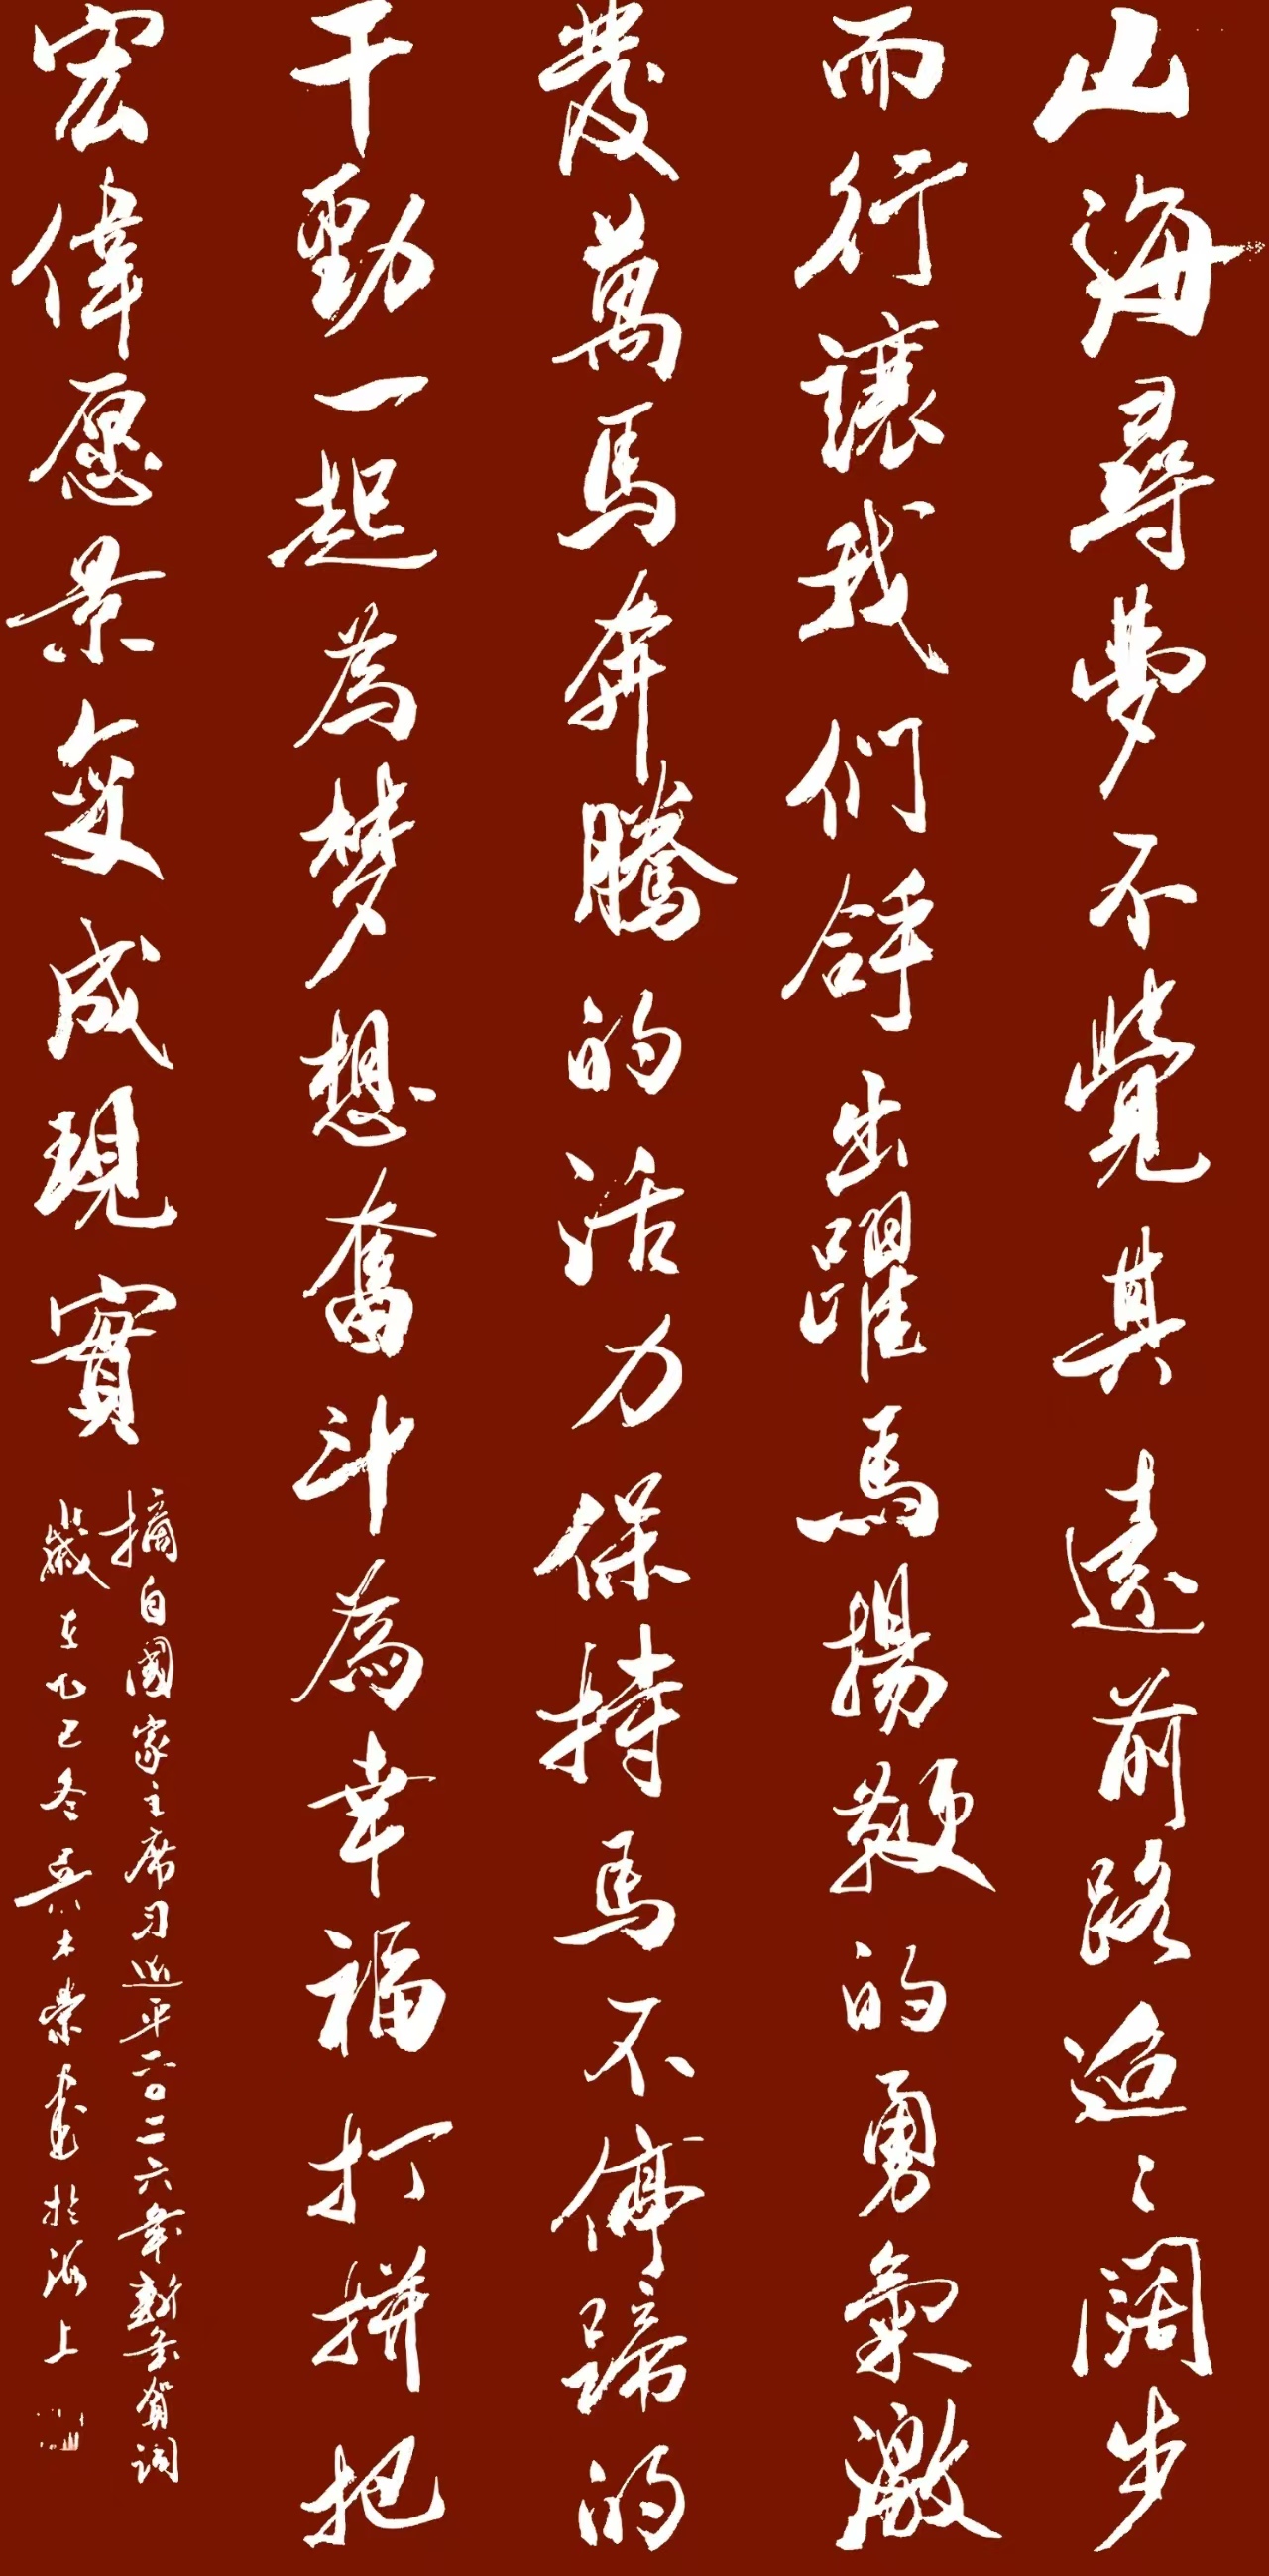 山海尋夢不覺其遠前路迢〻阔步
而行讓我们舒出躍馬揚鞭的勇氣激
發萬馬奔騰的活力保持馬不停蹄的
干勁一起為梦想奮斗為幸福打拼把
宏偉愿景变成現實
摘自國家主席习近平二〇二六年新年賀詞
歲在乙巳冬吴木榮書於海上